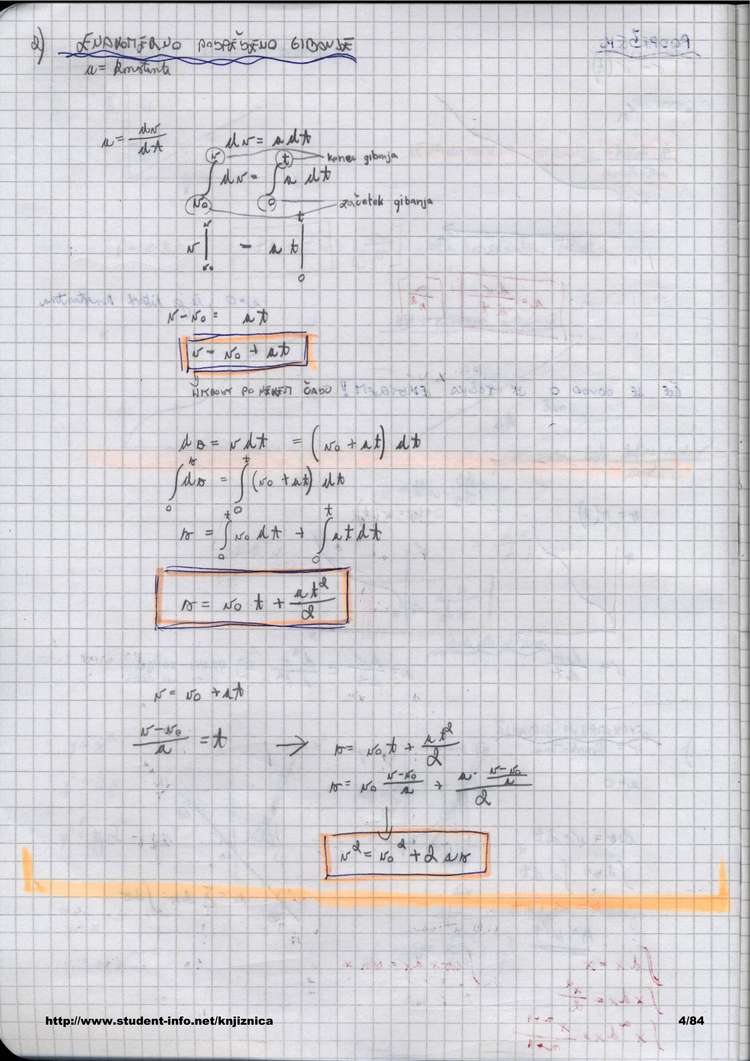 2) ENAKOMERNO POSPEŠENO GIBANJE
a = konstanta
a = dv/dt
dv = a dt
∫_{v₀}^{v} dv = ∫_{0}^{t} a dt
konec gibanja
začetek gibanja
v |_{v₀}^{v} = a t |_{0}^{t}
v - v₀ = at
v = v₀ + at
ČASU
ds = v dt = (v₀ + at) dt
∫_{0}^{s} ds = ∫_{0}^{t} (v₀ + at) dt
s = ∫_{0}^{t} v₀ dt + ∫_{0}^{t} at dt
s = v₀ t + at²/2
v = v₀ + at
(v - v₀)/a = t → s = v₀ t + at²/2
s = v₀ (v - v₀)/a + (a · (v - v₀)/a)/2
↓
v² = v₀² + 2as
http://www.student-info.net/knjiznica
4/84